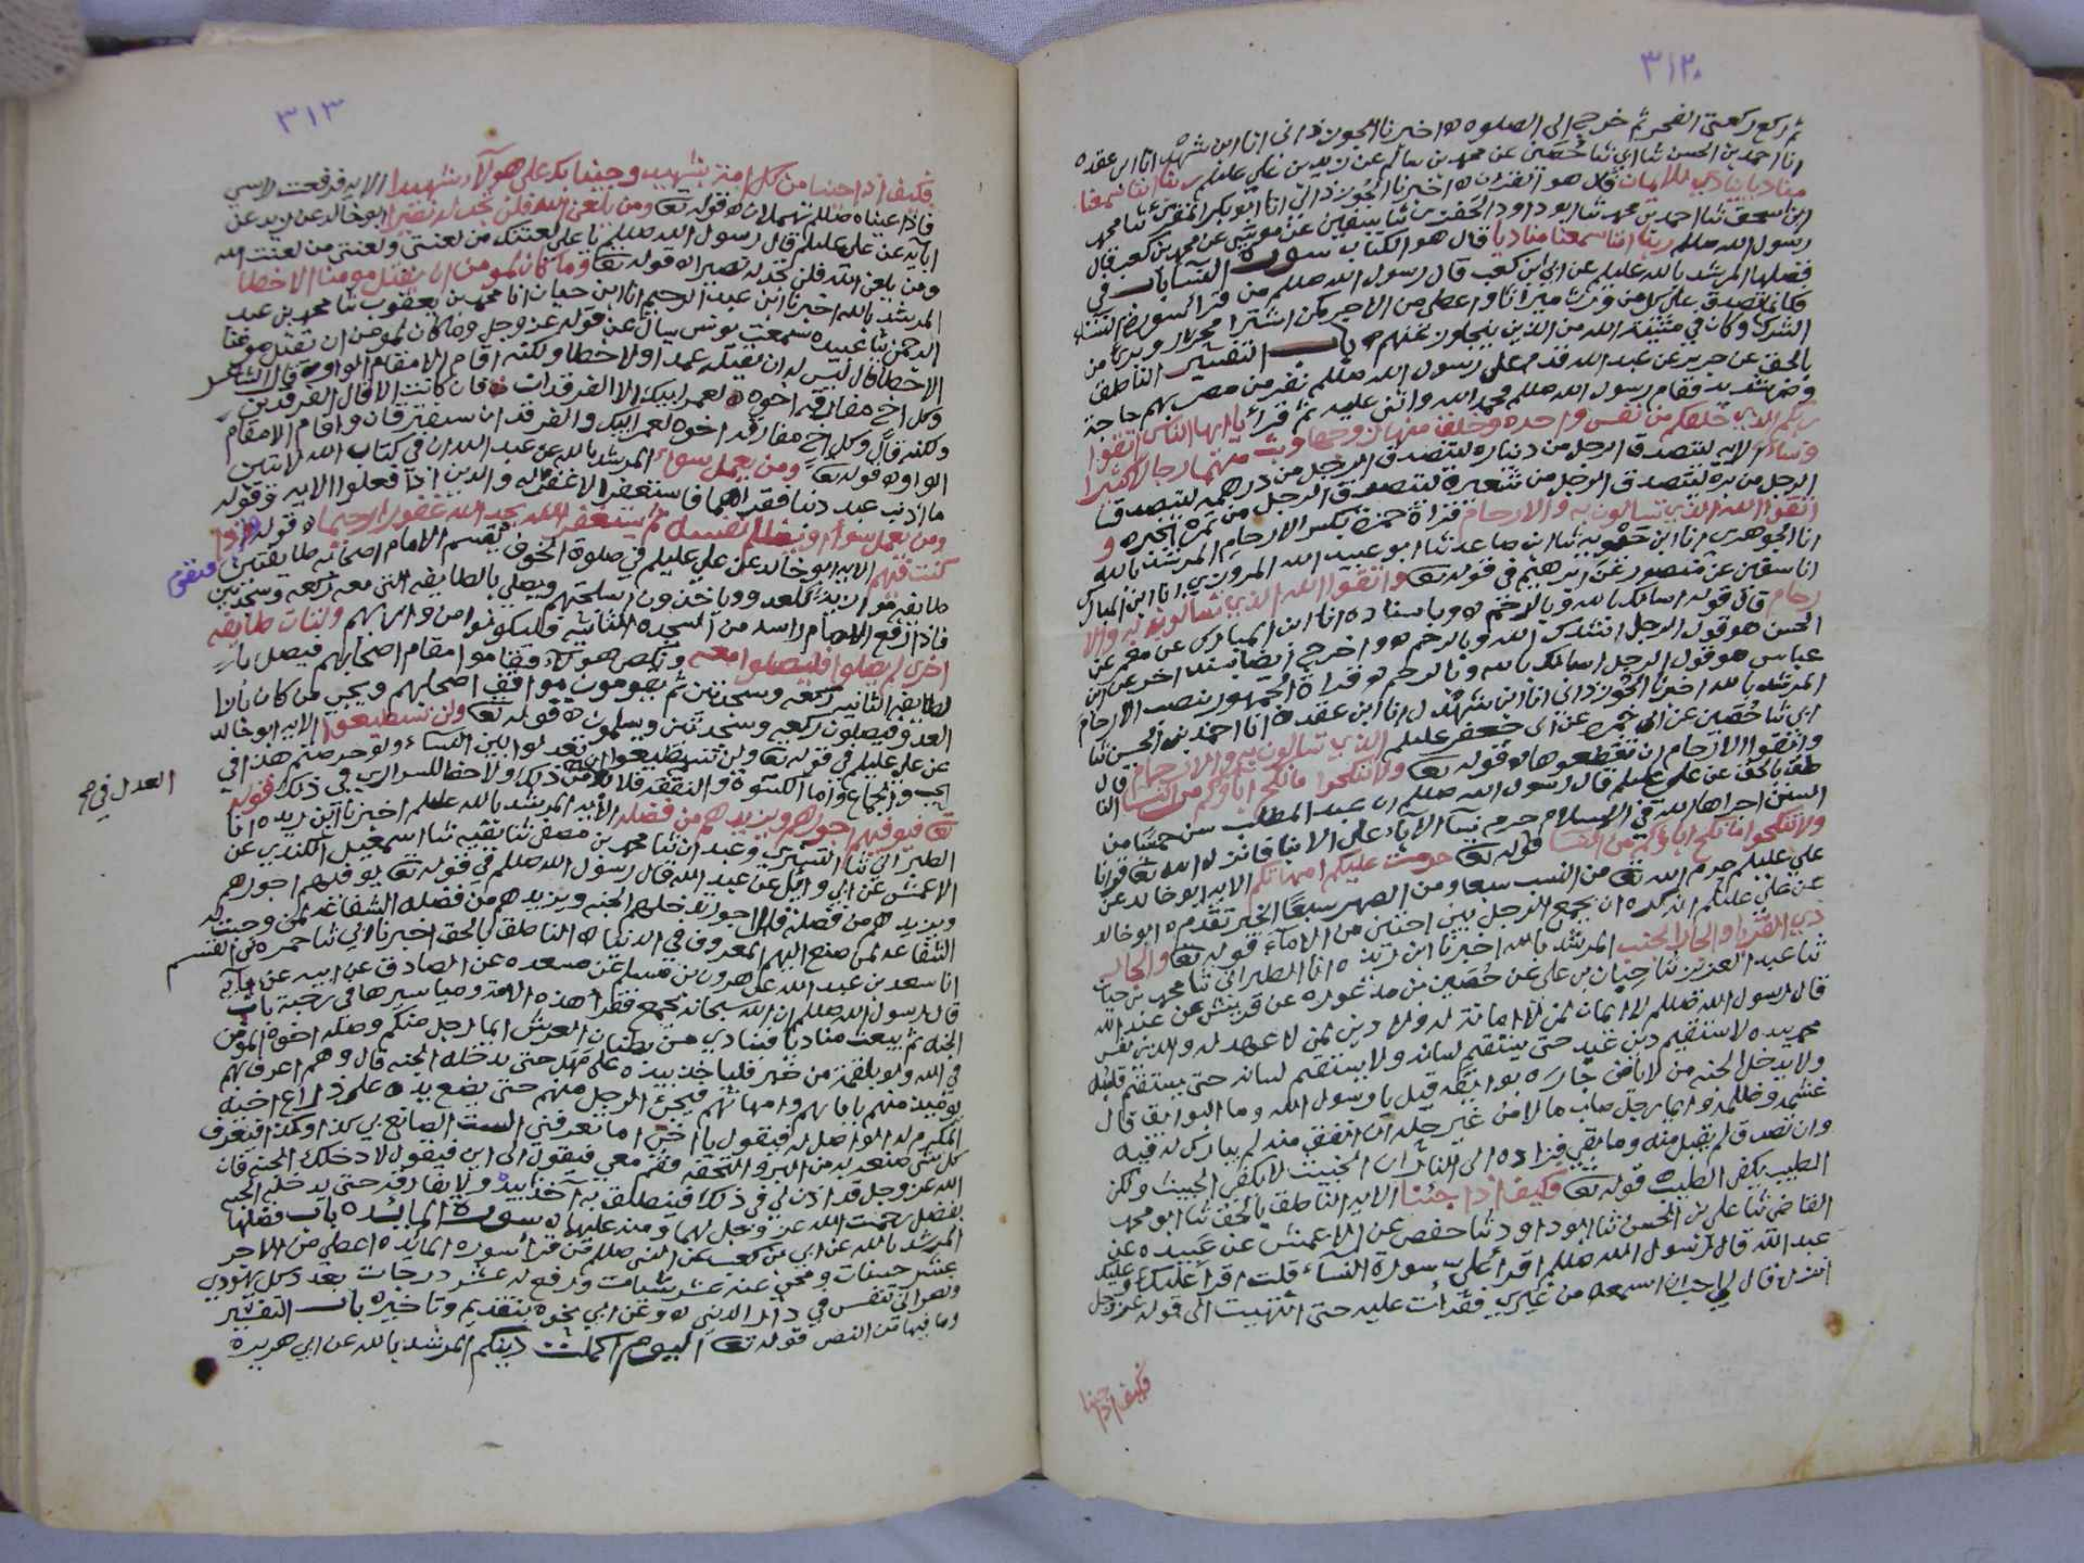 ٣١٢
ثم ركع ركعتي الفجر ثم خرج الى الصلوه ه اخبرنا الجوزذاني انا ابن شهدل انا ابن عقده
انا احمد بن الحسن ثنا ابي ثنا حُصَين عن محمد بن سالم عن زيد بن علي عليلم ربنا اننا سمعنا
مناديا ينادي للايمان قال هو القرآن ه اخبرنا الجُوزذاني انا ابو بكر المقرئ ثنا محمد
ابن اسحق ثنا احمد بن محمد ثنا ابو داود الحفري ثنا سفين عن موسى عن محمد بن كعب قال
رسول الله صللم ربنا اننا سمعنا مناديا قال هو الكتاب سورة النسآ باب في
فضلها المرشد بالله عليلم عن ابي ابن كعب قال رسول الله صللم من قرأ سورة النسآ
فكانما تصدق على كل من ورث ميراثا واعطي من الاجر كمن اشترا محررا وبرئ من
الشرك وكان في مشيئة الله من الذين يتجاوز عنهم ه باب التفسير الناطق
بالحق عن جرير عن عبد الله قدم على رسول الله صللم نفر من مضر بهم حاجة
وضر شديد فقام رسول الله صللم فحمد الله واثنى عليه ثم قرأ يا ايها الناس اتقوا
ربكم الذي خلقكم من نفس واحده وخلق منها زوجها وبث منهما رجالا كثيرا
ونسآء الايه ليتصدق الرجل من ديناره ليتصدق الرجل من درهمه ليتصدق
الرجل من بره ليتصدق الرجل من شعيره ليتصدق الرجل من تمره الخبر ه و
اتقوا الله الذي تسالون به والارحام قراة حمزة بكسر الارحام المرشد بالله
انا الجوهري انا ابن حَيُّويه ثنا ابن صاعد ثنا ابو عبيد الله المروزي انا ابن المبارك
انا سفين عن منصور عن ابرهيم في قوله تعا واتقوا الله الذي تسالون به والا
رحام قال قوله اسالك بالله وبالرحم ه وباسناده انا ابن المبارك عن معمر عن
الحسن هو قول الرجل انشدك الله وبالرحم ه واخرج ايضا بسند اخر عن ابن
عباس هو قول الرجل اسالك بالله وبالرحم ه قراة الجمهور بنصب الارحام
المرشد بالله اخبرنا الجُوزذاني انا ابن شَهْدل انا ابن عقده انا احمد بن الحسين ثنا
ابي ثنا حُصَين عن ابي حمزه عن ابي جعفر عليلم الذي تسالون به والارحام قال
واتقوا الارحام ان تقطعوها ه قوله تعا ولا تنكحوا ما نكح اباؤكم من النسا النا
طق بالحق عن علي عليلم قال رسول الله صللم ان عبد المطلب سن خمسا من
السنن اجراها الله في الاسلام حرم نسآ الابآء على الابنا فانزل الله تعا قرانا
ولا تنكحوا ما نكح اباؤكم من النسا قوله تعا حرمت عليكم امهاتكم الايه ابو خالد عن
علي عليلم حرم الله تعا من النسب سبعا ومن الصهر سبعًا الخبر تقدم ه ابو خالد
عن علي عليلم انه كره ان يجمع الرجل بين اختين من الامآء قوله تعا والجار
ذي القربا والجار الجنب المرشد بالله اخبرنا ابن ريذه انا الطبراني ثنا محمد بن حيان
ثنا عبد العزيز ثنا حِبان بن علي عن حُصَين بن مذعوره عن قريش عن عبد الله
قال رسول الله صللم لا ايمان لمن لا امانة له ولا دين لمن لا عهد له والذي نفس
محمد بيده لا يستقيم دين عبد حتى يستقيم لسانه ولا يستقيم لسانه حتى يستقيم قلبه
ولا يدخل الجنه من لا يامن جاره بوائقه قيل يا رسول الله وما البوائق قال
غشمه وظلمه وايما رجل صاب مالا من غير حله ان انفق منه لم يبارك له فيه
وان تصدق لم يقبل منه وما بقي فزاده الى النار ان الخبيث لا يكفر الخبيث ولكن
الطيب يكفر الطيب ه قوله تعا فكيف اذا جئنا الايه الناطق بالحق ثنا ابو محمد
القاضي ثنا علي بن الحسن ثنا ابو داود ثنا حفص عن الاعمش عن عَبيده عن
عبد الله قال رسول الله صللم اقرأ علي سورة النسآء قلت اقرأ عليك وعليك
انزل قال اني احب ان اسمعه من غيري فقرأت عليه حتى انتهيت الى قوله عز وجل
فكيف اذا جئنا
٣١٣
فكيف اذا جئنا من كل امة بشهيد وجئنا بك على هولآء شهيدا الايه فرفعت راسي
فاذا عيناه صللم تهملان ه قوله تعا ومن يلعن الله فلن تجد له نصيرا ابو خالد عن زيد عن
ابآيه عن علي عليلم قال رسول الله صللم يا علي لعنتك من لعنتي ولعنتي من لعنت الله
ومن يلعن الله فلن تجد له نصيرا ه قوله تعا وما كان لمومن ان يقتل مومنا الا خطا
المرشد بالله اخبرنا ابن عبد الرحيم انا ابن حيان انا محمد بن يعقوب ثنا محمد بن عبد
الرحمن ثنا عبيده سمعت يونس يسال عن قوله عز وجل وما كان لمومن ان يقتل مومنا
الا خطا قال ليس له ان يقتله عمدا ولا خطا ولكنه اقام الا مقام الواو ه قال الشاعر
وكل اخ مفارقه اخوه ه لعمر ابيك الا الفرقدان ه فان كانت الا قال الفرقدين
ولكنه قال وكل اخ مفارقه اخوه لعمر ابيك والفرقدان سيفترقان واقام الا مقام
الواو ه قوله تعا ومن يعمل سوءا المرشد بالله عن عبد الله ان في كتاب الله لايتين
ما اذنب عبد ذنبا فقراهما فاستغفر الا غفر له والذين اذا فعلوا الايه وقوله
ومن يعمل سوأ او يظلم نفسه ثم يستغفر الله يجد الله غفورا رحيما ه قوله واذا
كنت فيهم الايه ابو خالد عن علي عليلم في صلوة الخوف يقسم الامام اصحابه طايفتين فتقوم
طايفه موازيه للعدو وياخذون اسلحتهم ويصلي بالطايفه التي معه ركعه وسجدتين
فاذا رفع الامام راسه من السجده الثانيه فليكونوا من ورائهم ولتات طايفه
اخرى لم يصلوا فليصلوا معه وينكص هولاء فقاموا مقام اصحابهم فيصلي بال
لطايفه الثانيه ركعه وسجدتين ثم يقومون مواقف اصحابهم ويجي من كان بازا
العدو فيصلون ركعه وسجدتين ويسلمون ه قوله تعا ولن تستطيعوا الايه ابو خالد
عن علي عليلم في قوله تعا ولن تستطيعوا ان تعدلوا بين النسآء ولو حرصتم هذا في
الحب والجماع واما الكسوة والنفقه فلا بد من ذلك ولا حظ للسراري في ذلك قوله
العدل في صح
تعا فيوفيهم اجورهم ويزيدهم من فضله الايه المرشد بالله عليلم اخبرنا ابن ريذه انا
الطبراني ثنا التستري وعبدان ثنا محمد بن مصفى ثنا بقيه ثنا اسمعيل الكندي عن
الاعمش عن ابي وايل عن عبد الله قال رسول الله صللم في قوله تعا يوفيهم اجورهم
ويزيدهم من فضله قال اجورهم يدخلهم الجنه ويزيدهم من فضله الشفاعه لمن وجبت له
الشفاعه لمن صنع اليهم المعروف في الدنيا ه الناطق بالحق اخبرنا ابي ثنا حمزه بن القسم
انا سعد بن عبد الله عن هرون بن مسلم عن مسعده عن الصادق عن ابيه عن ابآيه
قال رسول الله صللم ان الله سبحانه يجمع فقرأ هذه الامة ومياسيرها في رحبة باب
الجنه ثم يبعث مناديا فينادي من بطنان العرش ايما رجل منكم وصله اخوه المومن
في الله ولو بلقمة من خبز فلياخذ بيده على مَهَل حتى يدخله الجنه قال وهم اعرف بهم
يومئذ منهم بابائهم وامهاتهم فيجئ الرجل منهم حتى يضع يده على ذراع اخيه
المكرم له الواصل له فيقول يا اخي اما تعرفني الست الصانع بي كذا وكذا فيعرف
كل شي صنعه به من البر والتحفه فقم معي فيقول الى اين فيقول لادخلك الجنه فان
الله عز وجل قد اذن لي في ذلك فينطلق به آخذا بيده ولا يفارقه حتى يدخله الجنه
بفضل رحمت الله عز وجل لهما ومنه عليهما ه سورة المايده باب فضلها
المرشد بالله عن ابي بن كعب عن النبي صللم من قرأ سورة المايده اعطي من الاجر
عشر حسنات ومحي عنه عشر سيات ورفع له عشر درجات بعدد كل يهودي
ونصراني تنفس في دار الدنيا ه وعن ابي نحوه بتقديم وتاخير ه باب التفسير
وما فيها من النص قوله تعا اليوم اكملت دينكم المرشد بالله عن ابي هريرة